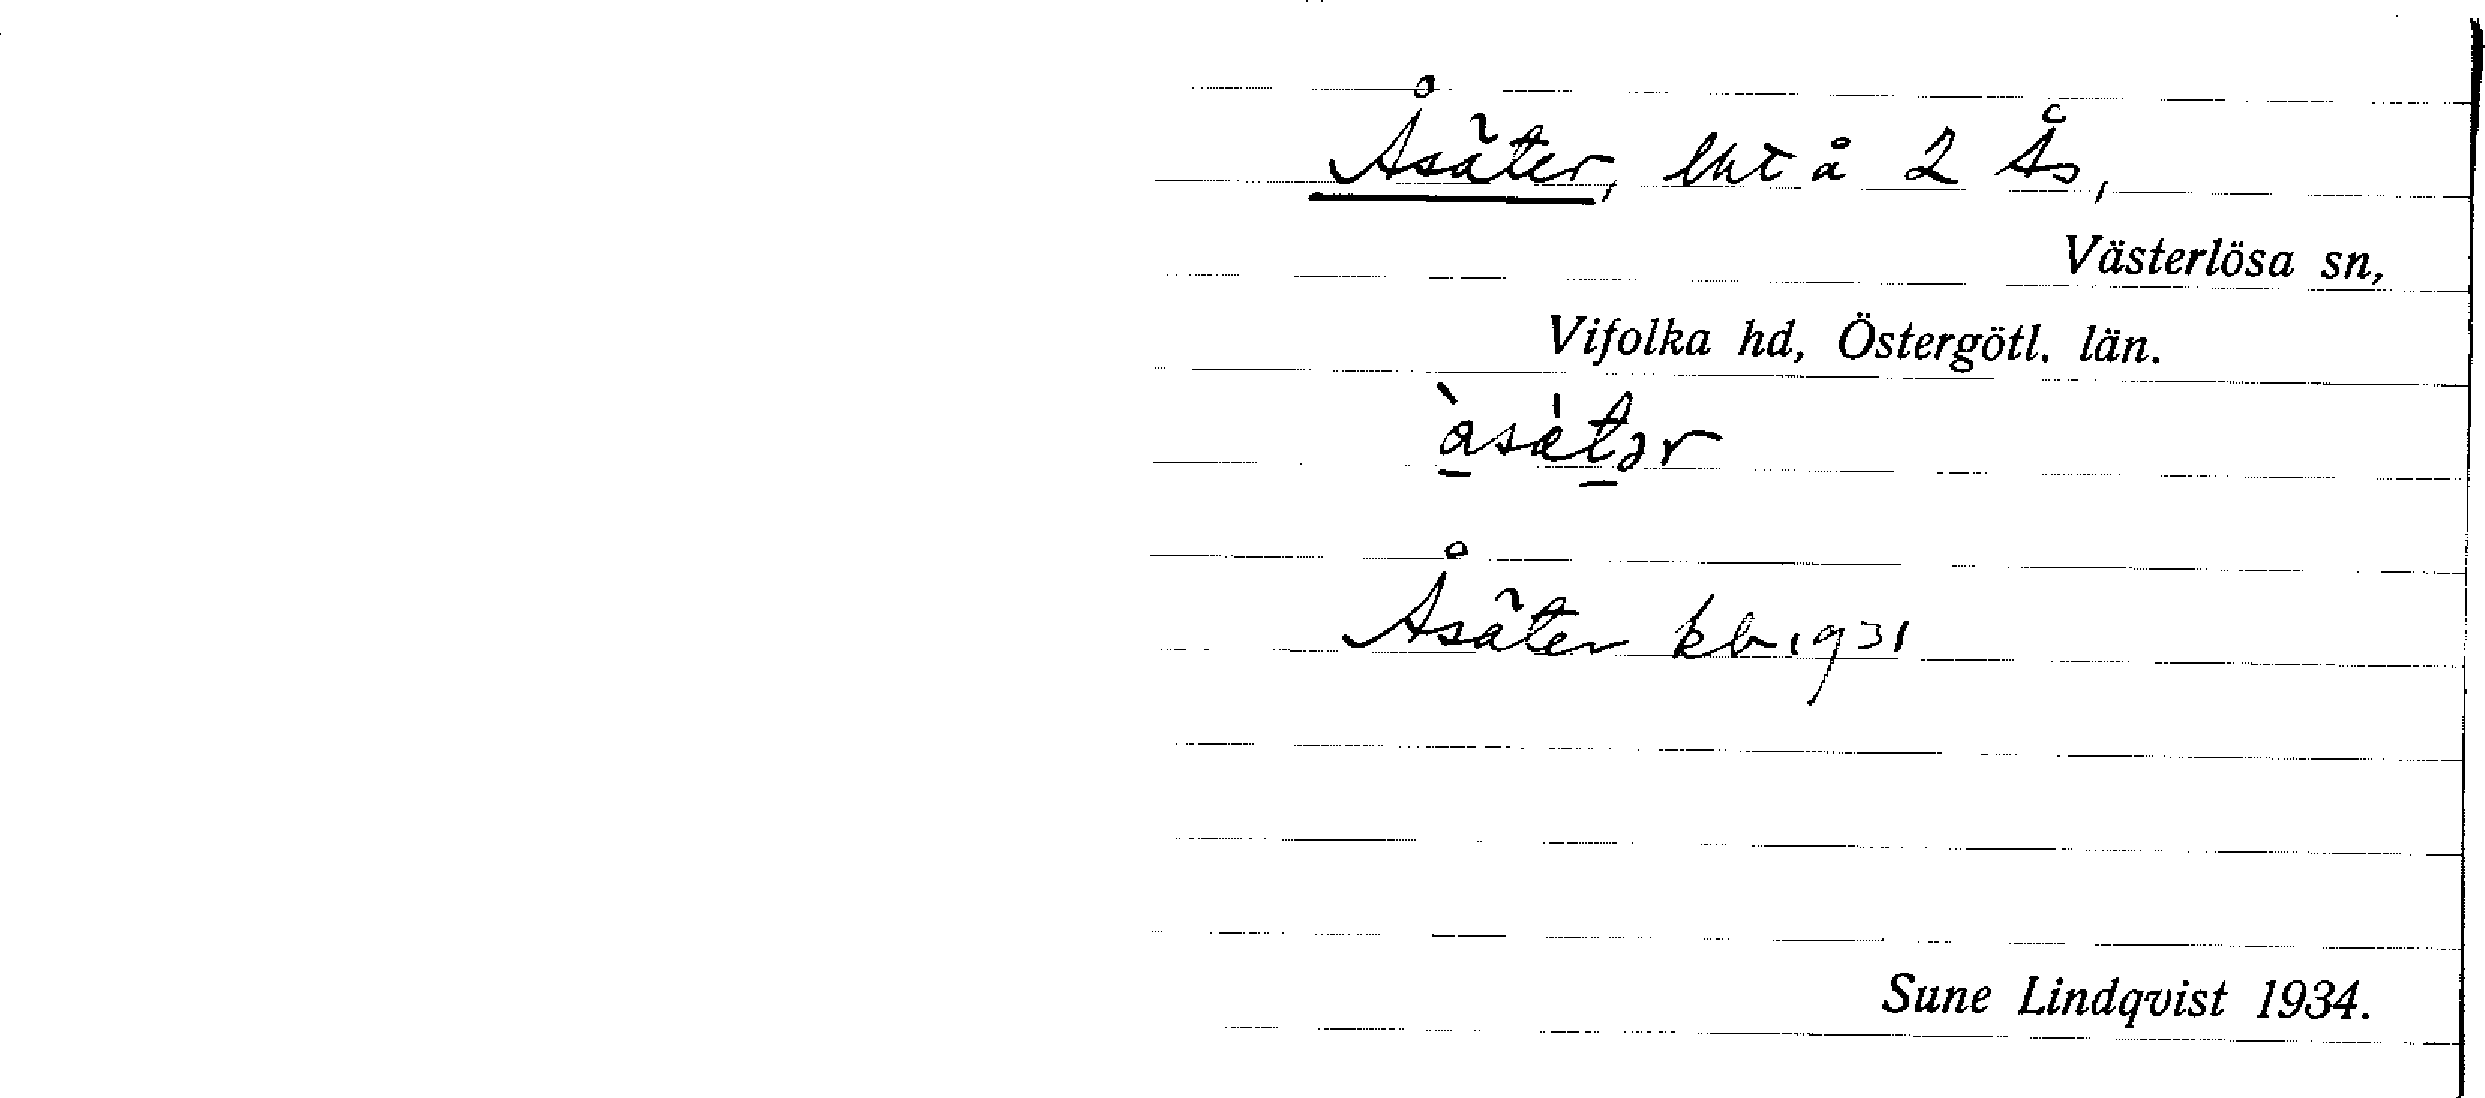 Åsäter, lht å 2 Ås,
Västerlösa sn,
Vifolka hd, Östergötl. län.
àsǽtər
Åsäter kb 1931
Sune Lindqvist 1934.